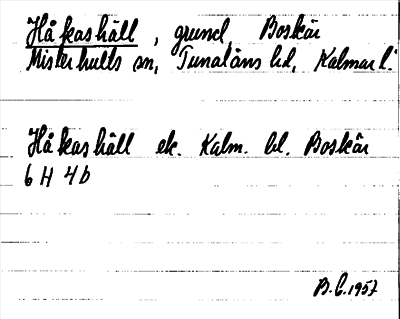 Håkashäll, grund Boskär
Misterhults sn, Tunaläns hd, Kalmar l.
Håkashäll ek. Kalm. bl. Boskär
6 H 4 b
B.C. 1957